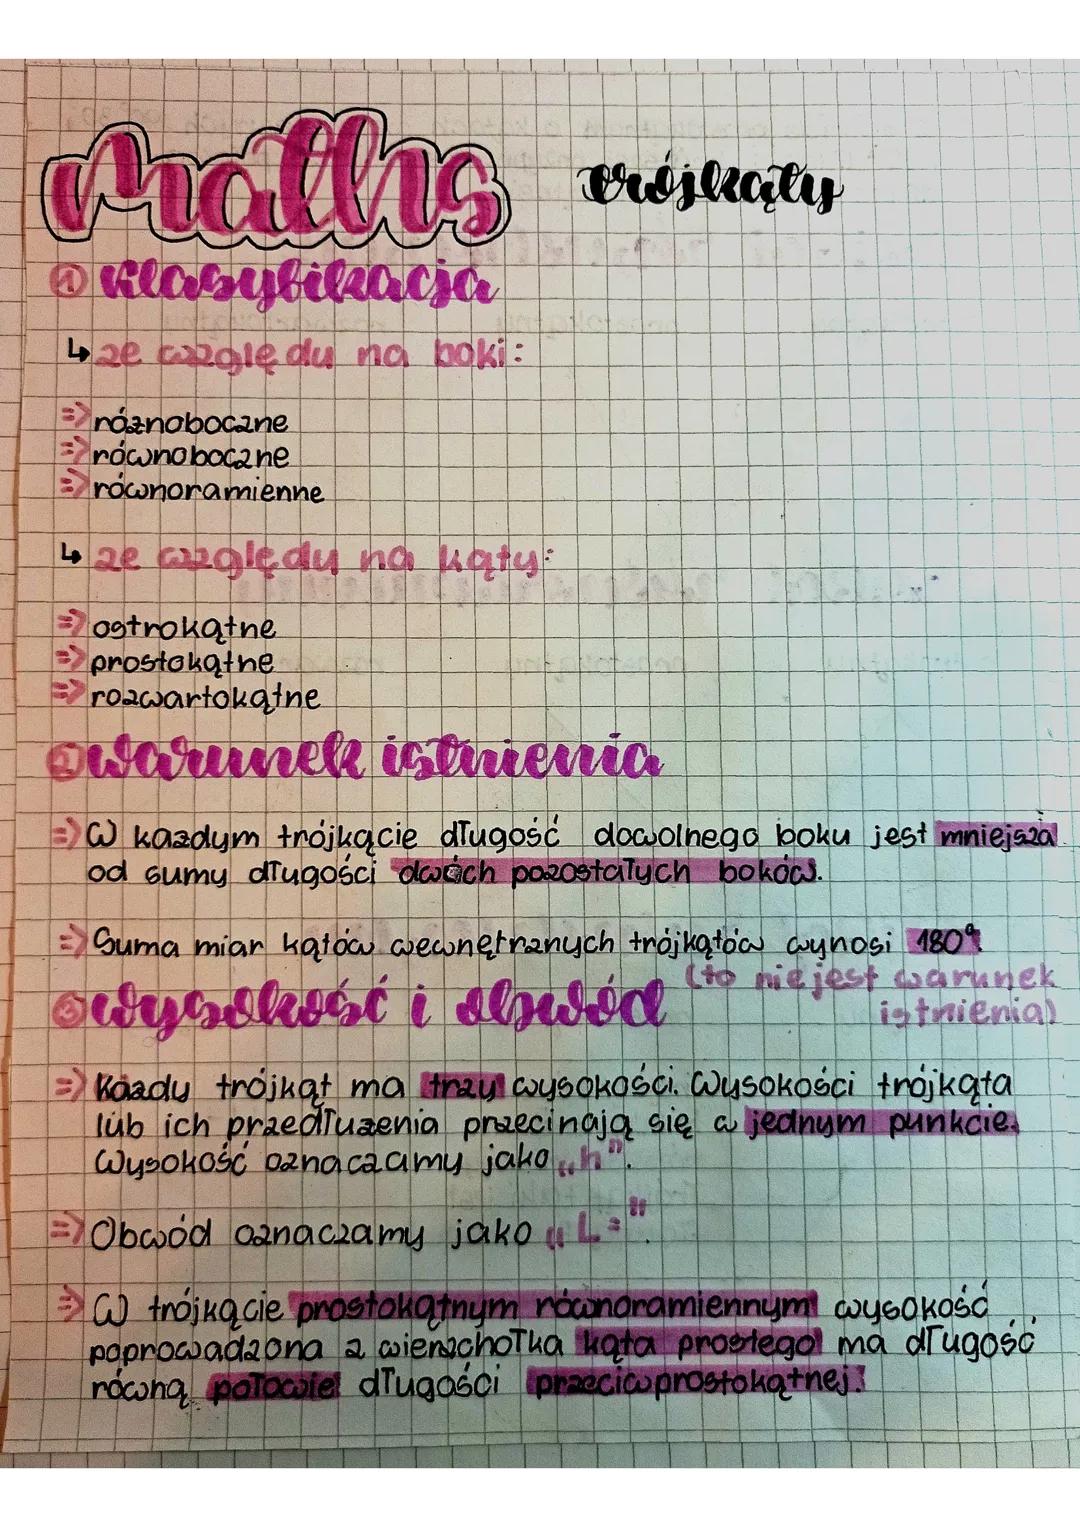 maths trójkąty
① klasyfikacja
↳ ze względu na boki:
=> różnoboczne
=> równoboczne
=> równoramienne
↳ ze względu na kąty:
=> ostrokątne
=> prostokątne
=> rozwartokątne
② warunek istnienia
=> W każdym trójkącie długość dowolnego boku jest mniejsza
od sumy długości dwóch pozostałych boków.
=> Suma miar kątów wewnętrznych trójkątów wynosi 180°.
(to nie jest warunek
istnienia)
③ wysokość i obwód
=> Każdy trójkąt ma trzy wysokości. Wysokości trójkąta
lub ich przedłużenia przecinają się w jednym punkcie.
Wysokość oznaczamy jako „h”.
=> Obwód oznaczamy jako „L=”.
=> W trójkącie prostokątnym równoramiennym wysokość
poprowadzona z wierzchołka kąta prostego ma długość
równą połowie długości przeciwprostokątnej!